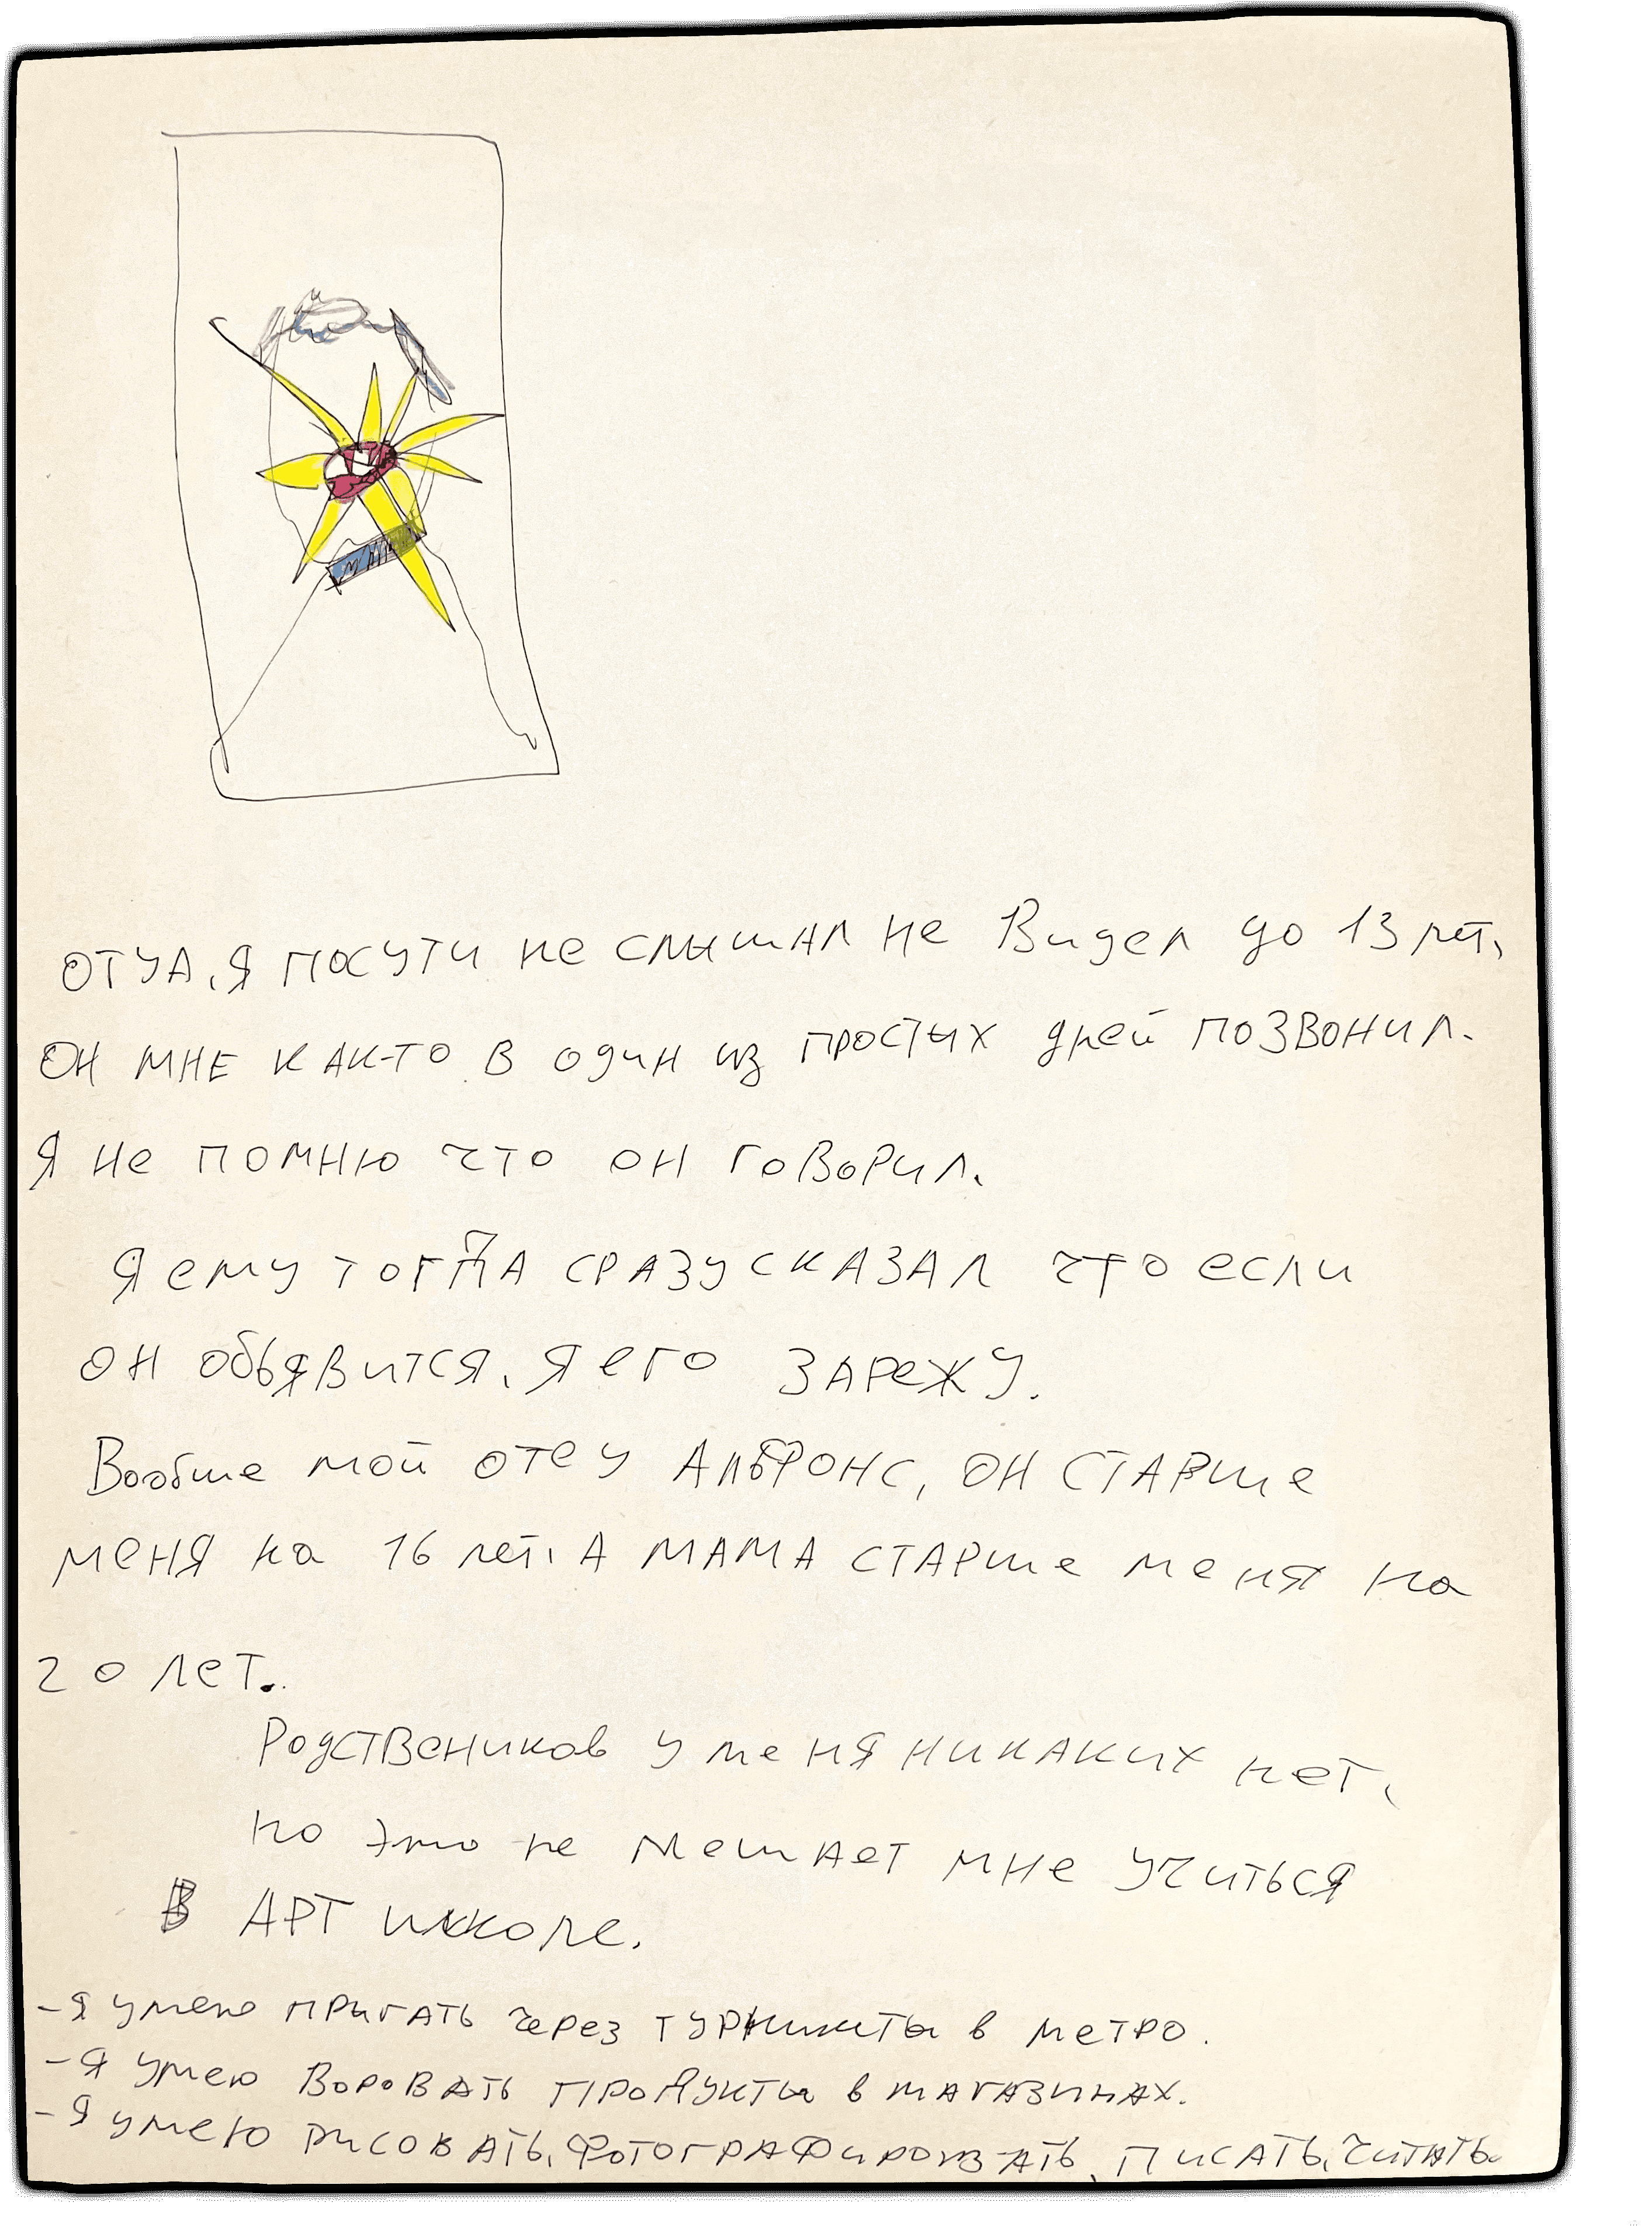 ОТЦА, Я ПОСУТИ не слышал не Видел до 13 лет,
ОН МНЕ КАК-ТО В один из простых дней позвонил.
Я не помню что он говорил.
Я ему тогда сразу сказал что если
он обьявится, я его зарежу.
Вообще мой отец Альфонс, он старше
меня на 16 лет, а мама старше меня на
20 лет.
Родствеников у меня никаких нет,
но это не мешает мне учиться
в АРТ школе.
- я умею пригать через турникиты в метро.
- я умею воровать продукты в магазинах.
- я умею рисовать, фотографировать, писать, читать.